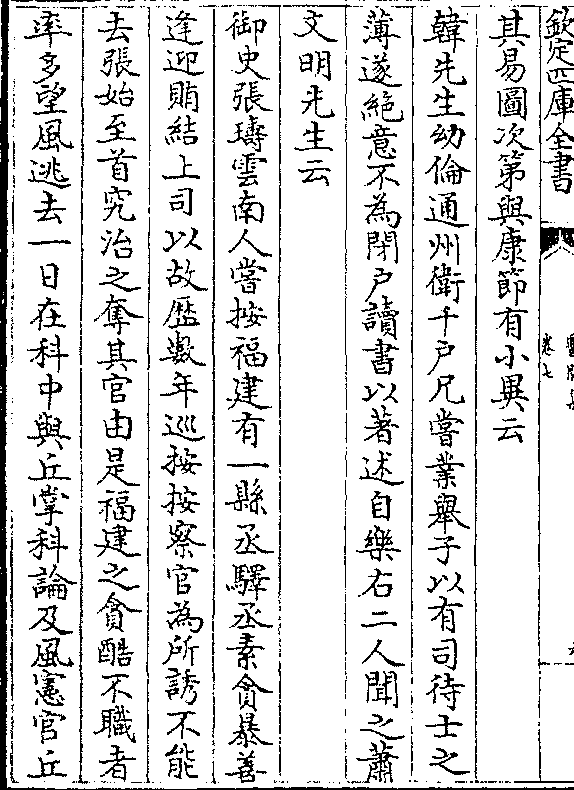 欽定四庫全書
卷七
其易圖次第與康節有小異云
韓先生幼倫通州衛千戶兄嘗業舉子以有司待士之
薄遂絕意不為閉戶讀書以著述自樂右二人聞之蕭
文明先生云
御史張璹雲南人嘗按福建有一縣丞驛丞素貪暴善
逢迎賄結上司以故歷數年巡按按察官為所誘不能
去張始至首究治之奪其官由是福建之貪酷不職者
率多望風逃去一日在科中與丘掌科論及風憲官丘